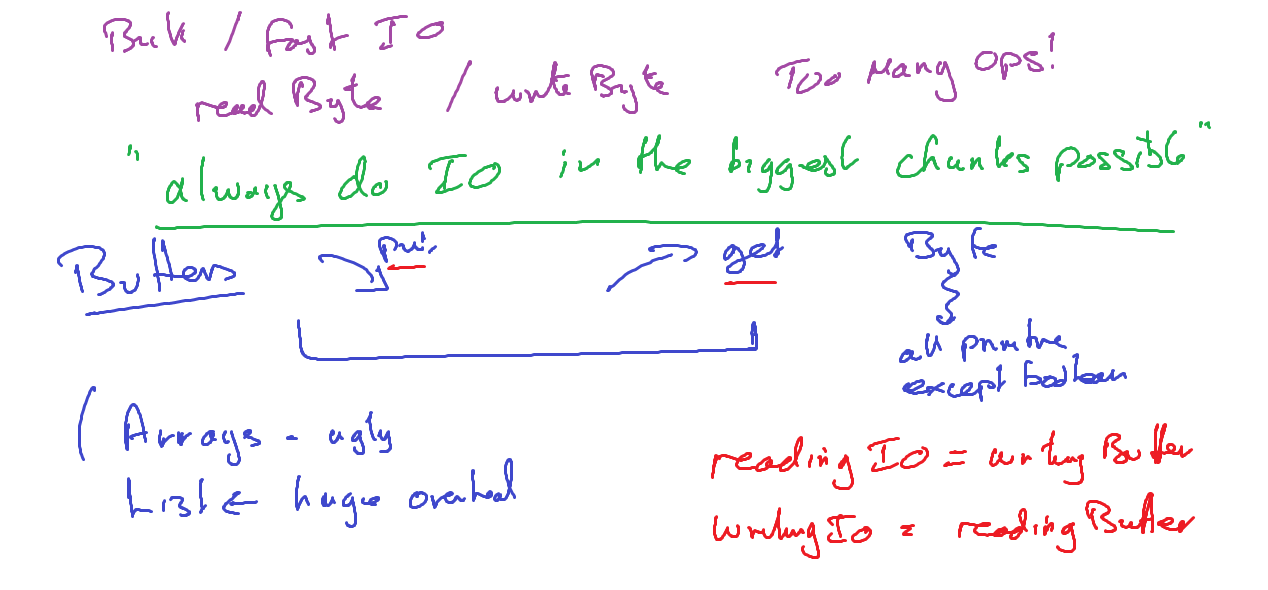 Bulk / Fast IO
read Byte / write Byte Too Many Ops!
"always do IO in the biggest chunks possible"
Buffers put get Byte
all primitive
except boolean
( Arrays - ugly
List ← huge overhead
reading IO = writing Buffer
writing IO = reading Buffer